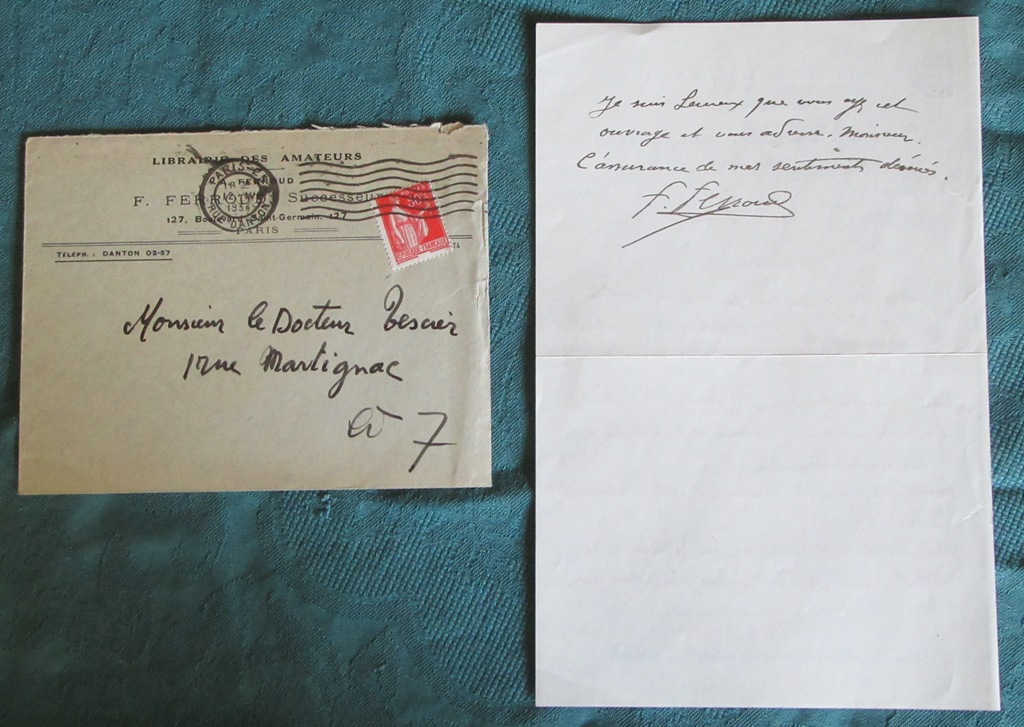 LIBRAIRIE DES AMATEURS
F. FERROUD Successeur
127, Boulevard Saint-Germain, 127
PARIS
TÉLÉPH. : DANTON 02-57
PARIS-
RUE DANTON
1934
50
REPUBLIQUE FRANÇAISE
74
Monsieur le Docteur
17 rue Martignac
à 7
Je suis heureux que vous ayez cet
ouvrage et vous adresse, Monsieur,
l'assurance de mes sentiments dévoués.
F. Ferroud